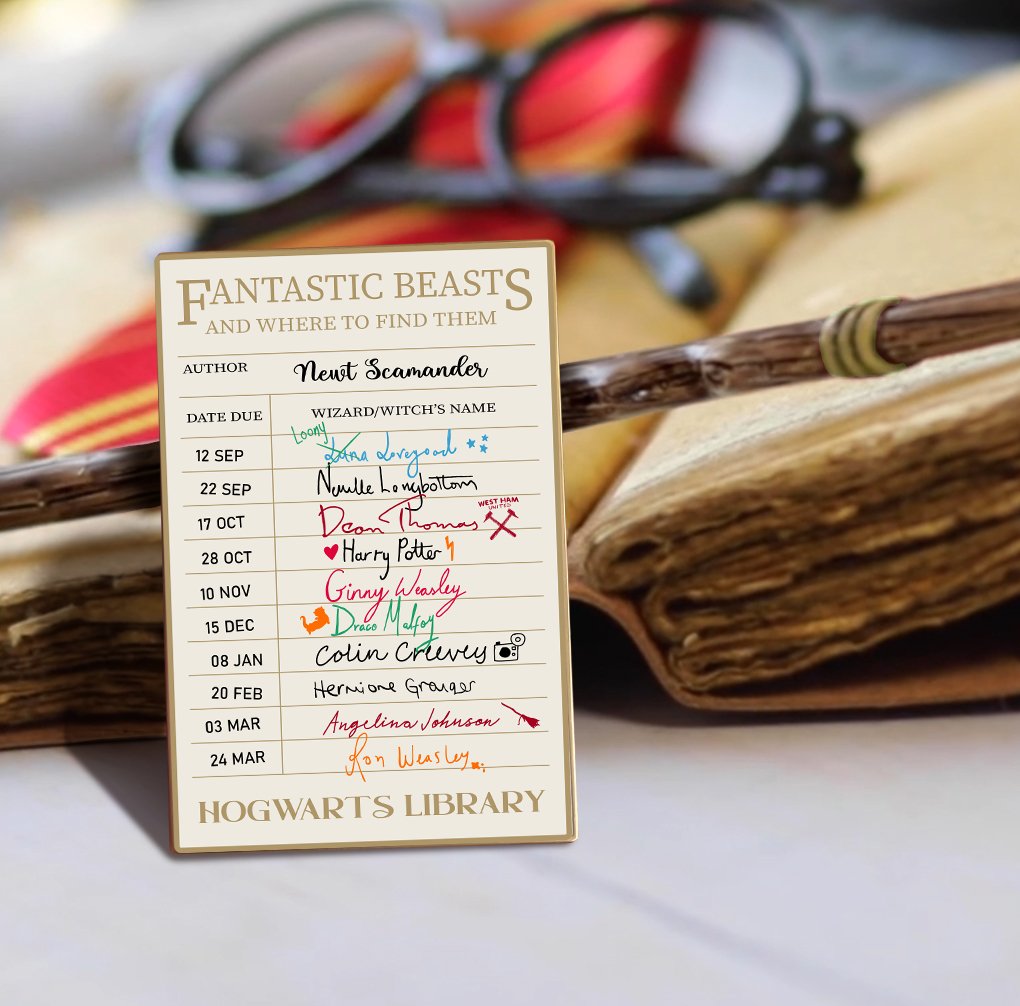 FANTASTIC BEASTS
AND WHERE TO FIND THEM
AUTHOR Newt Scamander
DATE DUE WIZARD/WITCH'S NAME
Loony
12 SEP Luna Lovegood
22 SEP Neville Longbottom
WEST HAM
UNITED
17 OCT Dean Thomas
28 OCT Harry Potter
10 NOV Ginny Weasley
15 DEC Draco Malfoy
08 JAN Colin Creevey
20 FEB Hermione Granger
03 MAR Angelina Johnson
24 MAR Ron Weasley
HOGWARTS LIBRARY